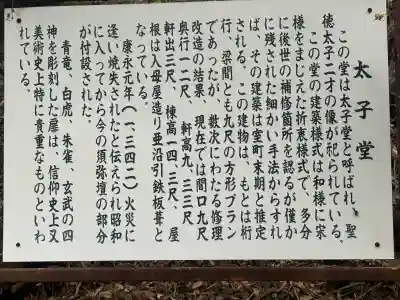 太子堂
この堂は太子堂と呼ばれ、聖
徳太子二才の像が祀られている。
この堂の建築様式は和様に宗
様をまじえた折衷様式で、多分
に後世の補修箇所を認るが僅か
に残された細かい手法からすれ
ば、その建築は室町末期と推定
される。この建物は、もとは桁
行、梁間とも九尺の方形プラン
であったが、数次にわたる修理
改造の結果、現在では間口九尺
奥行一二尺、軒高九、三三尺
軒出三尺、棟高一四、三尺、屋
根は入母屋造り亜沿引鉄板葺と
なっている。
康永元年(一、三四二)火災に
逢い焼失されたと伝えられ昭和
に入ってから今の須弥壇の部分
が付設された。
青竜、白虎、朱雀、玄武の四
神を彫刻した扉は、信仰史上又
美術史上特に貴重なものといわ
れている。